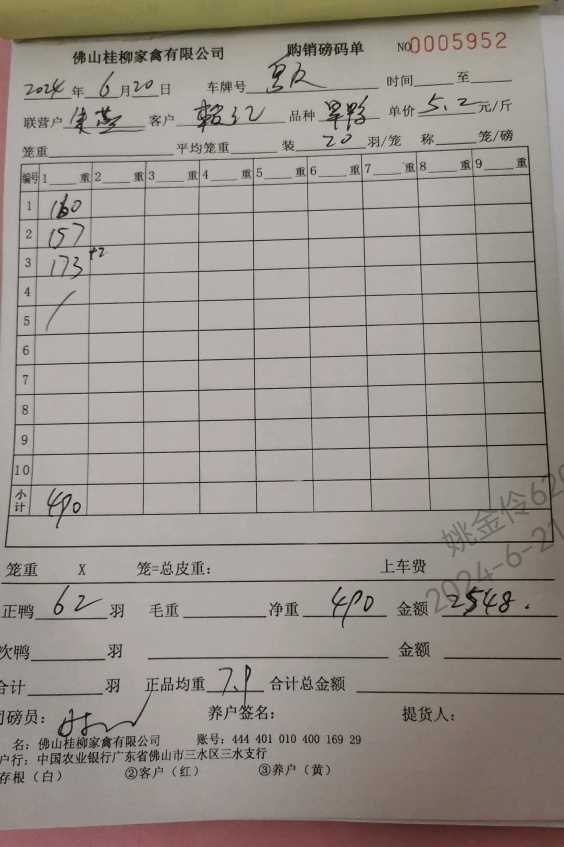 佛山桂柳家禽有限公司 购销磅码单 NO0005952
2024年6月20日 车牌号 时间 至
联营户 客户 品种 旱鸭 单价 5.2 元/斤
笼重 平均笼重 装 20 羽/笼 称 笼/磅
编号 1 重 2 重 3 重 4 重 5 重 6 重 7 重 8 重 9 重
1 160
2 157
3 173 +2
4
5
6
7
8
9
10
小计 490
笼重 X 笼=总皮重: 上车费
正鸭 62 羽 毛重 净重 490 金额 2548.
次鸭 羽 金额
合计 羽 正品均重 7.9 合计总金额
司磅员: 养户签名: 提货人:
名: 佛山桂柳家禽有限公司 账号: 444 401 010 400 169 29
户行: 中国农业银行广东省佛山市三水区三水支行
存根(白) ②客户(红) ③养户(黄)
姚金伶629
2024-6-21